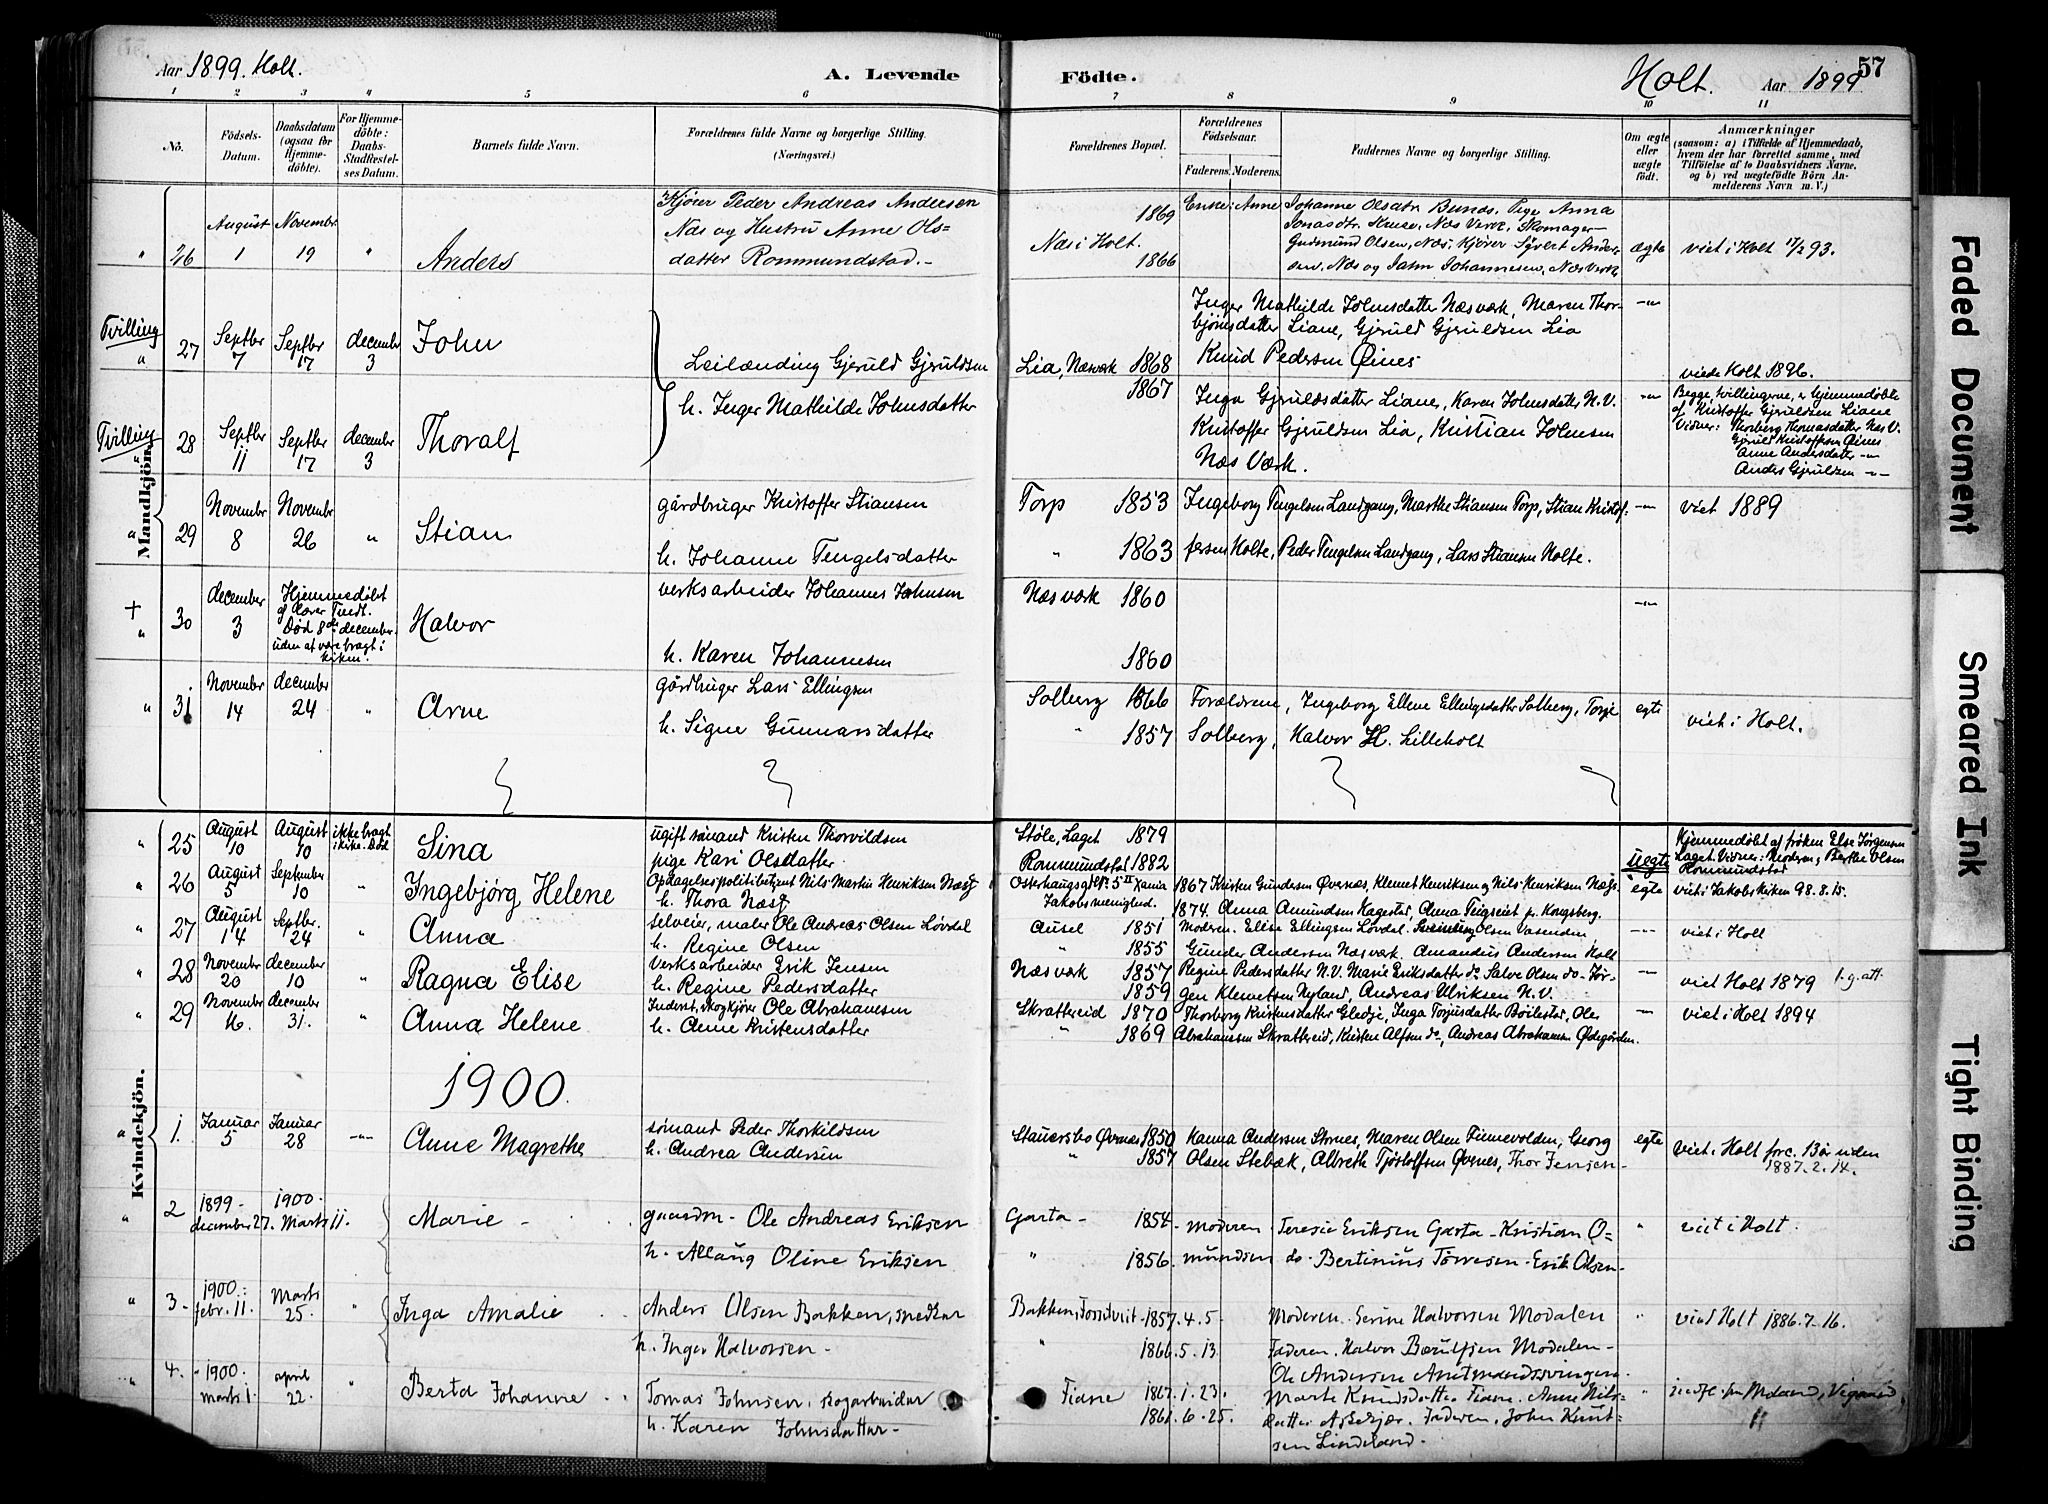 Aar 1899. Holt.
A. Levende
Födte.
Holt. Aar 1899
57
1 2 3 4 5 6 7 8 9 10 11
No.
Födsels-
Datum.
Daabsdatum
(ogsaa for
Hjemme-
döbte).
For Hjemme-
döbte:
Daabs-
Stadfæstel-
ses Datum.
Barnets fulde Navn.
Forældrenes fulde Navne og borgerlige Stilling.
(Næringsvei.)
Forældrenes Bopæl.
Forældrenes
Födselsaar.
Faderens. Moderens.
Faddernes Navne og borgerlige Stilling.
Om ægte
eller
uægte
födt.
Anmærkninger
(saasom: a) i Tilfælde af Hjemmedaab,
hvem der har forrettet samme, med
Tilföielse af to Daabsvidners Navne,
og b) ved uægtefödte Börn An-
melderens Navn m. V.)
Mandkjön.
" 26 August 1 November 19 " Anders
Kjører Peder Andreas Andersen
Næs og Hustru Anne Ols-
datter Rommundstad.-
Næs i Holt. 1869 1866
Enke: Anne Johanne Olsdtr. Bunes. Pige Anna
Jonasdtr. Næs Værk. Skomager
Gudmund Olsen, Næs. Kjører Syvert Ander-
sen, Næs og Johannesen, Næs Værk
ægte
viet i Holt 93.
Tvilling
" 27 Septbr 7 Septbr 17 december 3 John
Leilænding Gjeruld Gjeruldsen
Lia, Næsværk 1868
Inger Mathilde Johnsdatter Næsværk, Maren Thor-
bjørnsdatter Liane, Gjeruld Gjeruldsen Lia
Knud Pedersen Øines
-"-
viede Holt 1896.
Tvilling
" 28 Septbr 11 Septbr 17 december 3 Thoralf
h. Inger Mathilde Johnsdatter
1867
Inga Gjeruldsdatter Liane, Karen Johnsdatter N.V.
Kristoffer Gjeruldsen Lia, Kristian Johnsen
Næs Værk.
-"-
Begge tvillingerne er hjemmedøbte
af Kristoffer Gjeruldsen Liane
Vidner: Thorberg Thomasdatter Næs V.
Gjeruld Kristoffersen Øines
Anne Andersdatter -"-
Anders Gjeruldsen -"-
" 29 November 8 November 26 " Stian
gårdbruger Kristoffer Stiansen
h. Johanne Tengelsdatter
Torp 1853
" 1863
Ingeborg Tengelsen Landgang, Marthe Stiansen Torp, Stian Kristof-
fersen Holte, Peder Tengelsen Landgang, Lars Stiansen Holte.
-"-
viet 1889
+
" 30 december 3
Hjemmedøbt
af lærer Tindt.
Død 8de december
uden at være bragt i
kirken.
Halvor
verksarbeider Johannes Johnsen
h. Karen Johannesen
Næsværk 1860
1860
-"-
" 31 November 14 december 24 " Arne
gårdbruger Lars Ellingsen
h. Signe Gunnarsdatter
Solberg 1866
" 1857
Forældrene, Ingeborg Ellene Ellingsdatter Solberg, Torje
Solberg, Halvor H. Lilleholt
egte
viet i Holt.
Kvindekjön.
" 25 August 10 August 10 ikke bragt i kirke. Død Sina
ugift sømand Kristen Thorvildsen
pige Kari Olsdatter
Støle, Laget 1879
Rommundstad 1882
uegte
Hjemmedøbt af frøken Else Jørgensen
Laget. Vidner: Moderen, Berthe Olsen
Rommundstad
" 26 August 5 September 10 " Ingebjørg Helene
Opdagelsespolitibetjent Nils Martin Henriksen Næss
h. Thora Næss
Osterhausgd. No. 5 II Xania
Jakobs menighed.
1867 Kristen Gundersen Øvernes, Klemet Henriksen og Nils Henriksen Næss
1874. Anna Amundsen Hagestad, Anna Teigseiet p. Kongsberg.
egte
viet i Jakobs kirken 98.8.15.
" 27 August 14 Septbr. 24 " Anna
selveier, maler Ole Andreas Olsen Løvdal
h. Regine Olsen
Ausel 1851
" 1855
Moderen. Elise Ellingsen Løvdal. Olsen Vasenden
Gunder Andersen Næsværk. Amandius Andersen Holt
-"-
viet i Holt
" 28 November 20 december 10 " Ragna Elise
Verksarbeider Erik Jensen
h. Regine Pedersdatter
Næsværk 1857
1859
Regine Pedersdatter N.V. Marie Eriksdatter do Salve Olsen do - Jør-
gen Klemetsen Nyland, Andreas Ulriksen N.V.
-"-
viet Holt 1879
" 29 November 16 december 31. " Anna Helene
Inderst, skogkjører Ole Abrahamsen
h. Anne Kristensdatter
Skrattereid 1870
" 1869
Thorborg Kristensdatter Gledje, Inga Torjusdatter Böilestad, Ole
Abrahamsen Skrattereid, Kristen Alfsen do, Andreas Abrahamsen Ødegården.
-"-
viet i Holt 1894
1900.
" 1. Januar 5 Januar 28 -"- Anne Magrethe
sømand Peder Thorkildsen
h. Andrea Andersen
Stauersbo Øvrnes 1850
" 1857
Hanna Andersen Stornes, Maren Olsen Finnevolden, Georg
Olsen Stebæk, Albreth Tjøstolfsen Øvrnes, Thor Jensen-
egte
viet i Holt forr. 13 år siden
1887.2.14.
" 2 1899 - december 27. 1900. Marts 11. Marie -
gaardm- Ole Andreas Eriksen
h. Allaug Oline Eriksen
Garta - 1854
" 1856.
moderen Teresie Eriksen Garta - Kristian O=
mundsen do - Bertinius Torresen - Erik Olsen-
"
viet i Holt.
" 3 - 1900. febr. 11. Marts 25. " Inga Amalie
Anders Olsen Bakken, snedker
h. Inger Halvorsen -
Bakken, Fossetveit - 1857.4.5.
" 1866.5.13
Moderen. Serine Halvorsen Modalen
Faderen. Halvor Modalen-
Ole Andersen Amtmandssvingen.
"
viet Holt 1886.7.16.
" 4. 1900. marts 1. april 22. " Berta Johanne
Tomas Johnsen, skogarbeider
h. Karen Johnsdatter -
Fiane 1867.1.23.
1861.6.25.
Marte Knudsdatter Fiane. Anne Nils-
datter Askekjær. Faderen. John Knut-
sen Lindeland.
"
Faded Document
Smeared Ink
Tight Binding